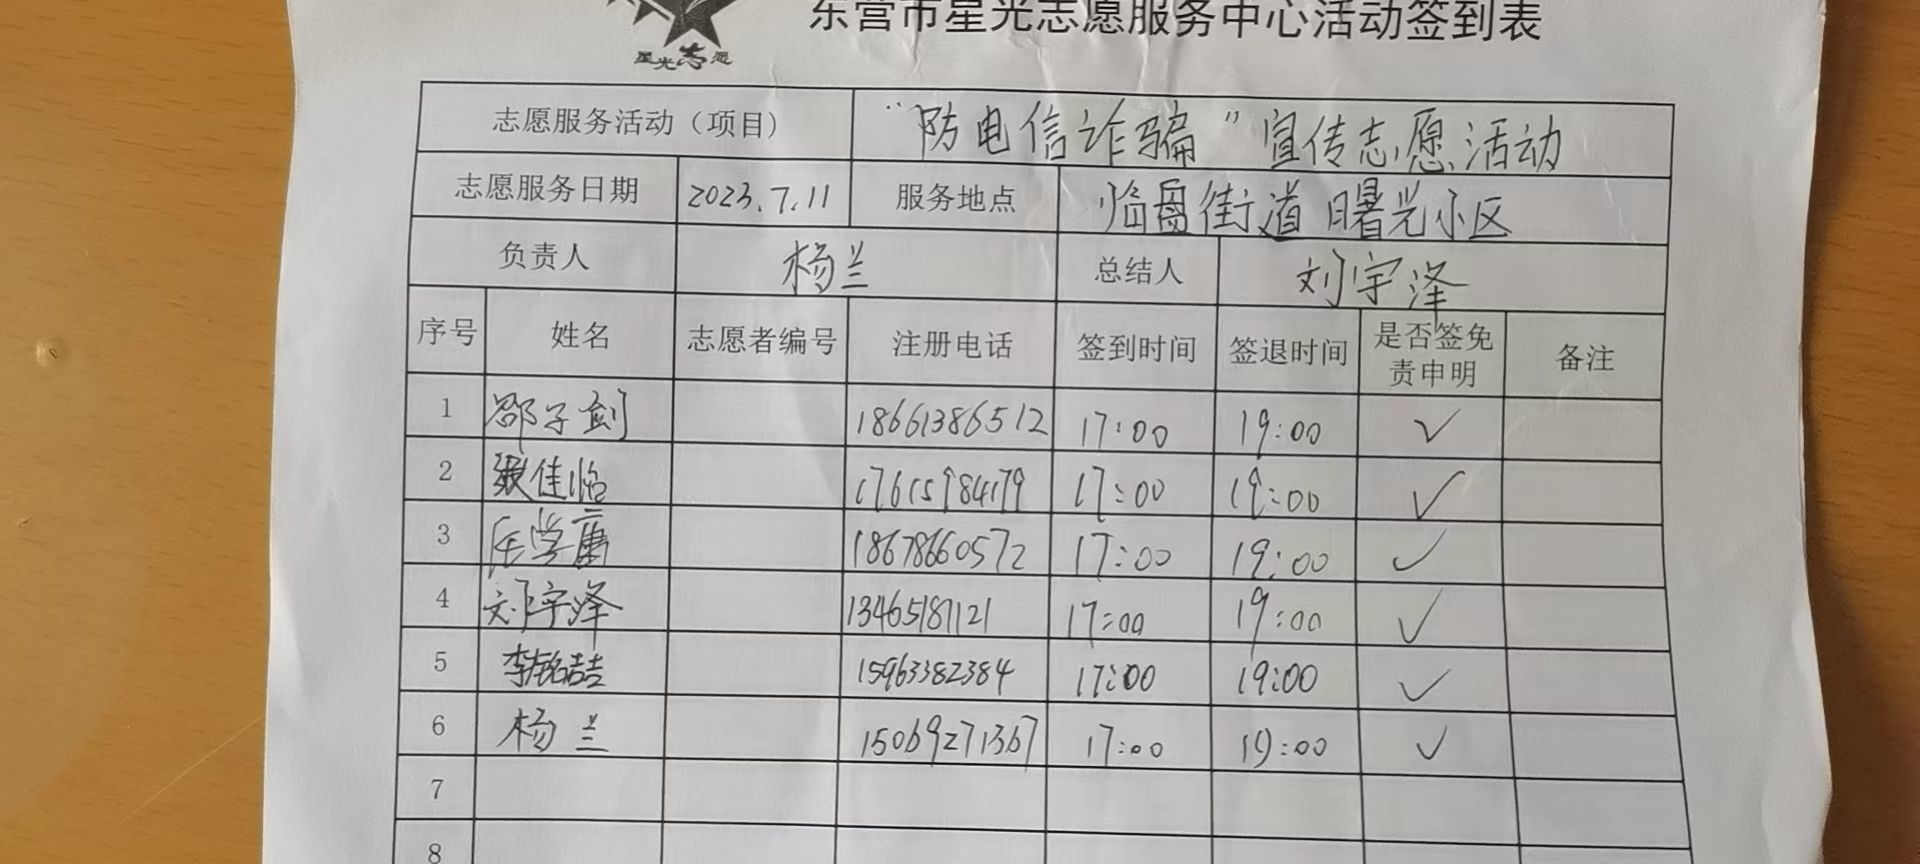 东营市星光志愿服务中心活动签到表
星光志愿
志愿服务活动（项目） “防电信诈骗”宣传志愿活动
志愿服务日期 2023.7.11 服务地点 临盘街道 曙光小区
负责人 杨兰 总结人 刘宇泽
序号 姓名 志愿者编号 注册电话 签到时间 签退时间 是否签免责申明 备注
1 邵子剑 18661386512 17:00 19:00 ✓
2 张佳临 17615984179 17:00 19:00 ✓
3 学庸 18678660572 17:00 19:00 ✓
4 刘宇泽 13465187121 17:00 19:00 ✓
5 李铭喆 15963382384 17:00 19:00 ✓
6 杨兰 15069271367 17:00 19:00 ✓
7
8